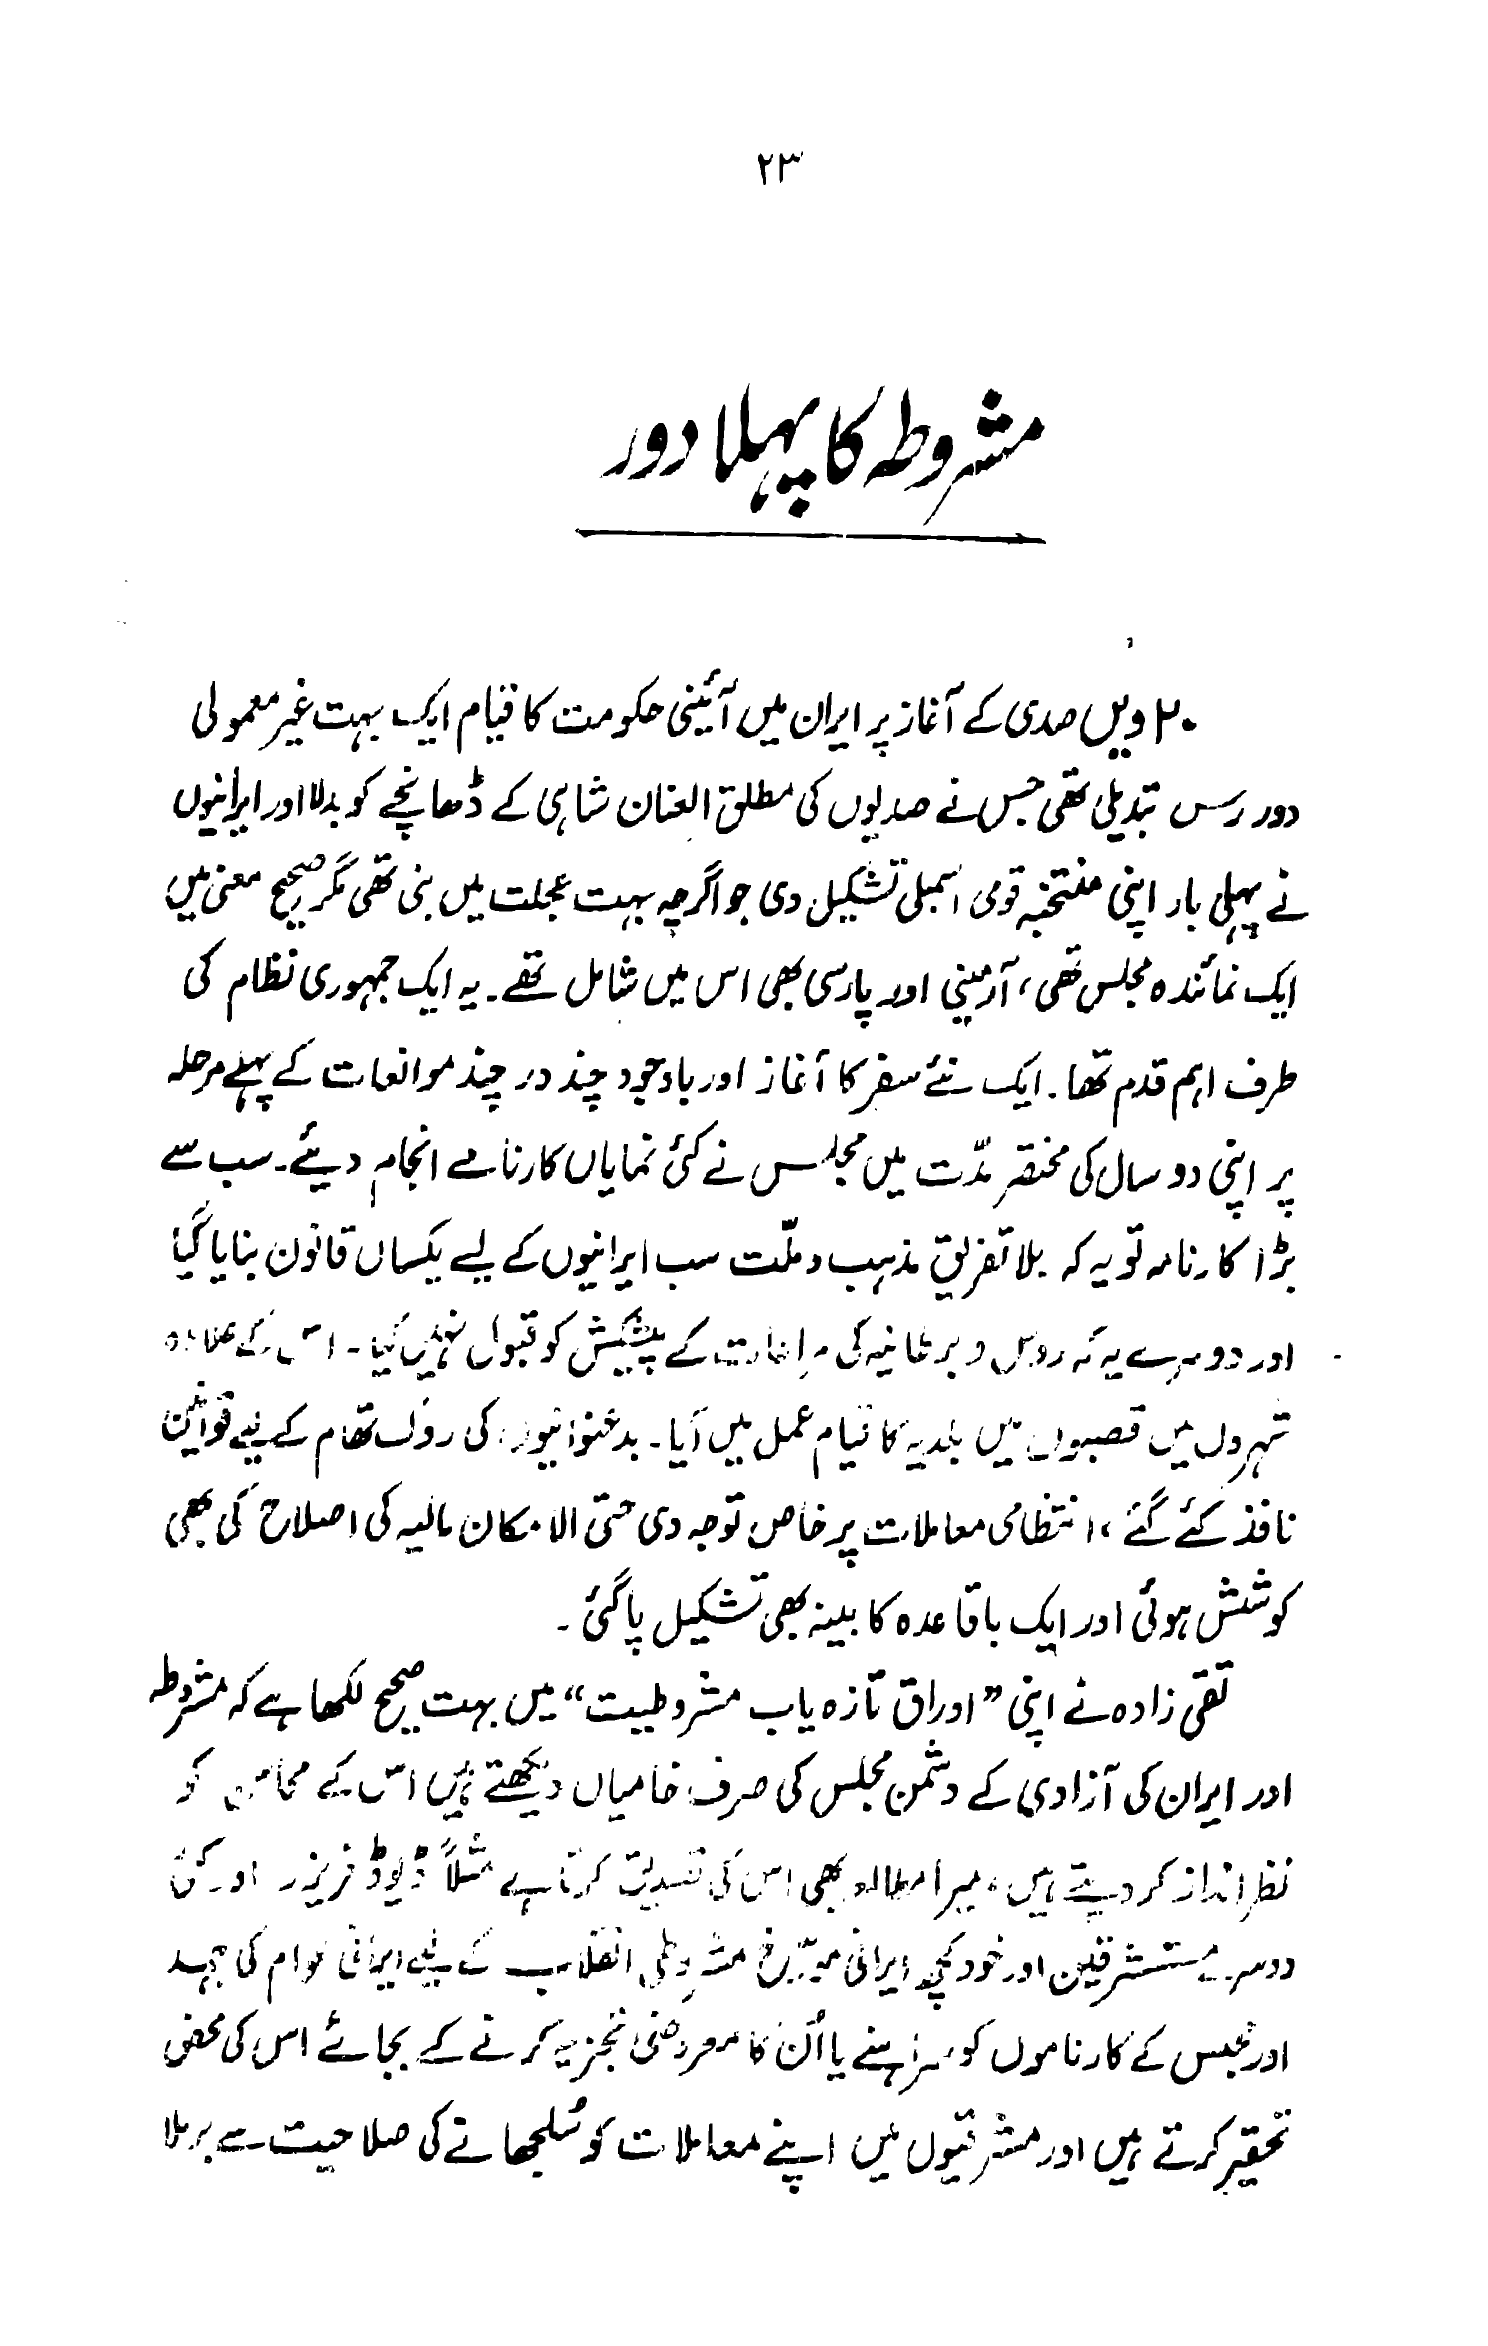 ۲۳
مشروطہ کا پہلا دور
۲۰ ویں صدی کے آغاز پر ایران میں آئینی حکومت کا قیام ایک بہت غیر معمولی
دور رس تبدیلی تھی جس نے صدیوں کی مطلق العنان شاہی کے ڈھانچے کو بدلا اور ایرانیوں
نے پہلی بار اپنی منتخبہ قومی اسمبلی تشکیل دی جو اگرچہ بہت عجلت میں بنی تھی مگر صحیح معنی میں
ایک نمائندہ مجلس تھی، آرمینی اور پارسی بھی اس میں شامل تھے۔ یہ ایک جمہوری نظام کی
طرف اہم قدم تھا۔ ایک نئے سفر کا آغاز اور باوجود چند در چند موانعات کے پہلے مرحلہ
پر اپنی دو سال کی مختصر مدّت میں مجلس نے کئی نمایاں کارنامے انجام دیئے۔ سب سے
بڑا کارنامہ تو یہ کہ بلا تفریق مذہب و ملّت سب ایرانیوں کے لیے یکساں قانون بنایا گیا
اور دوسرے یہ کہ روس و برطانیہ کی کے پیشکش کو قبول نہیں کیا۔ اس کے علاوہ
شہروں میں قصبوں میں بلدیہ کا قیام عمل میں آیا۔ بدعنوانیوں کی روک تھام کے لیے قوانین
نافذ کئے گئے، انتظامی معاملات پر خاص توجہ دی حتی الامکان مالیہ کی اصلاح کی بھی
کوشش ہوئی اور ایک باقاعدہ کابینہ بھی تشکیل پا گئی۔
تقی زادہ نے اپنی ”اوراق تازہ یاب مشروطیت“ میں بہت صحیح لکھا ہے کہ مشروطہ
اور ایران کی آزادی کے دشمن مجلس کی صرف خامیاں دیکھتے ہیں اس کے محاسن کو
نظر انداز کر دیتے ہیں، میرا مطالعہ بھی اس کی تصدیق کرتا ہے مثلاً ڈیوڈ فریزر اور کئی
دوسرے مستشرقین اور خود کچھ ایرانی مورّخ مشروطی انقلاب کے لیے ایرانی عوام کی جہد
اور مجلس کے کارناموں کو سراہنے یا اُن کا معروضی تجزیہ کرنے کے بجائے اس کی محض
تحقیر کرتے ہیں اور مشرقیوں میں اپنے معاملات کو سُلجھانے کی صلاحیت سے برملا